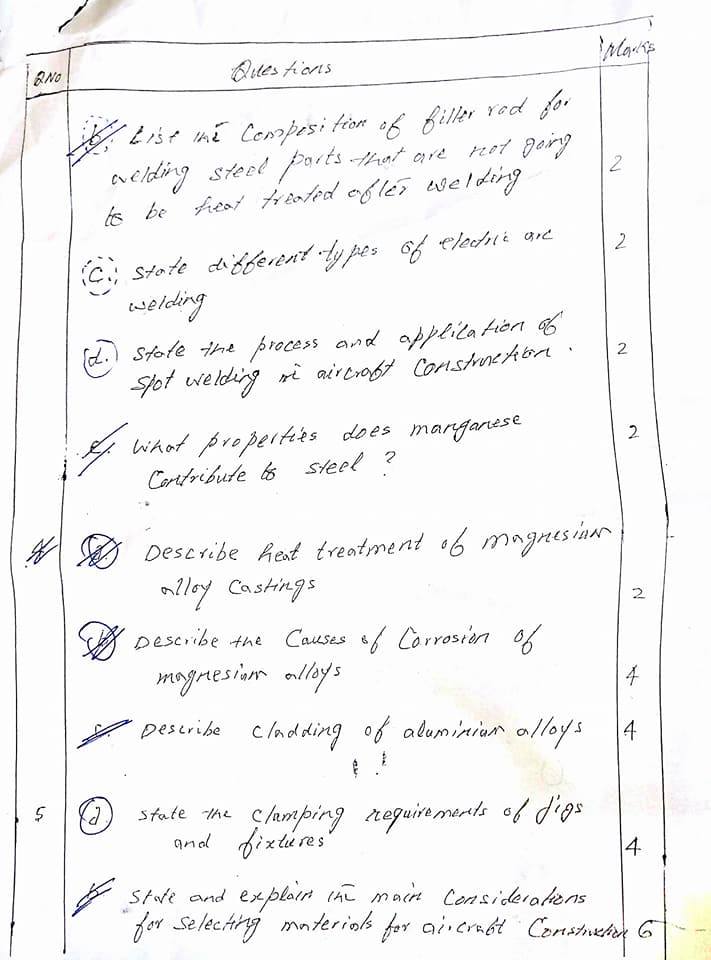 QNo Questions Marks
b. List the Composition of filler rod for
welding steel parts that are not going 2
to be heat treated after welding
C. State different types of electric arc 2
welding
d. State the process and application of 2
spot welding in aircraft Construction.
e. What properties does manganese 2
Contribute to steel ?
4 Describe heat treatment of magnesium
alloy Castings 2
b Describe the Causes of Corrosion of
magnesium alloys 4
c. Describe cladding of aluminium alloys 4
5 a State the clamping requirements of Jigs
and fixtures 4
b State and explain the main Considerations
for selecting materials for aircraft Construction 6